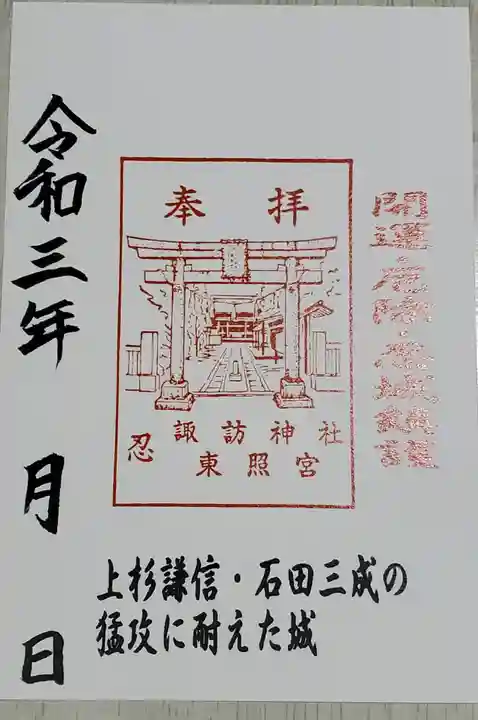 開運厄除・
奉拝
忍 諏訪神社
東照宮
上杉謙信・石田三成の
猛攻に耐えた城
令和三年 月 日